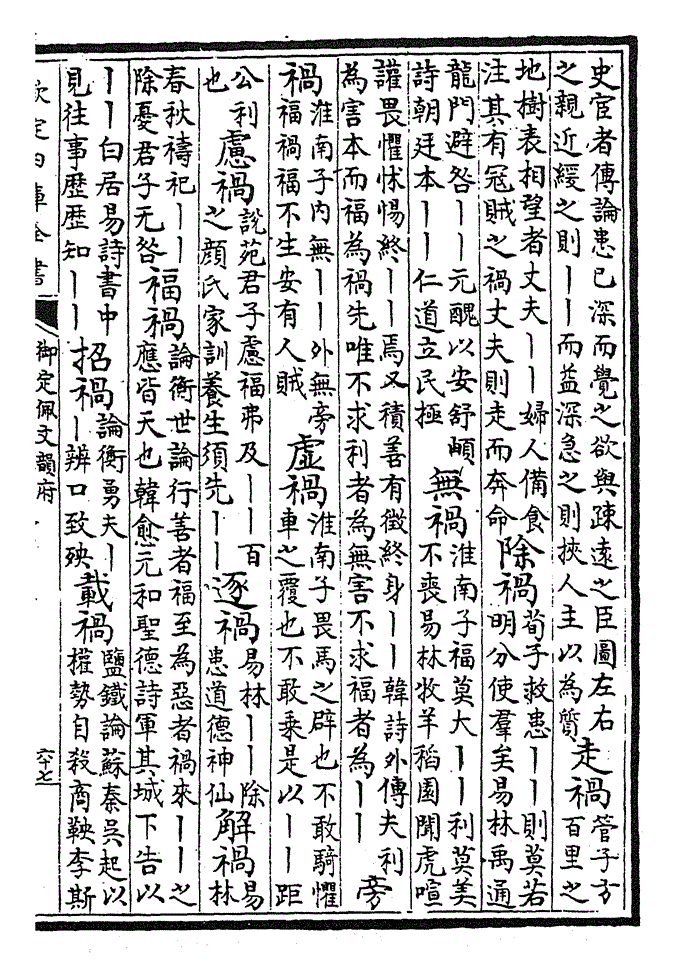 史宦者傳論患已深而覺之欲與疎遠之臣圖左右
之親近緩之則——而益深急之則挾人主以為質
走禍
管子方
百里之
地樹表相望者丈夫——婦人備食
注其有冦賊之禍丈夫則走而奔命
除禍
荀子救患——則莫若
明分使羣矣易林禹通
龍門避咎——元醜以安舒
詩朝廷本——仁道立民極
無禍
淮南子福莫大——利莫美
不喪易林牧羊稻園聞虎喧
讙畏懼怵惕終——焉又積善有徵終身——韓詩外傳夫利
為害本而福為禍先唯不求利者為無害不求福者為——
旁禍
淮南子內無——外無旁
福禍福不生安有人賊
虛禍
淮南子畏馬之辟也不敢騎懼
車之覆也不敢乘是以——距
公利
也
慮禍
說苑君子慮福弗及——百
之顏氏家訓養生須先——
逐禍
易林——除
患道德神仙
解禍
易
林
春秋禱祀——
除憂君子无咎
福禍
論衡世論行善者福至為惡者禍來——之
應皆天也韓愈元和聖德詩軍其城下告以
——白居易詩書中
見往事歴歴知——
招禍
論衡勇夫—
—辨口致殃
載禍
鹽鐵論蘇秦吳起以
權勢自殺商鞅李斯
欽定四庫全書
御定佩文韻府
六十七